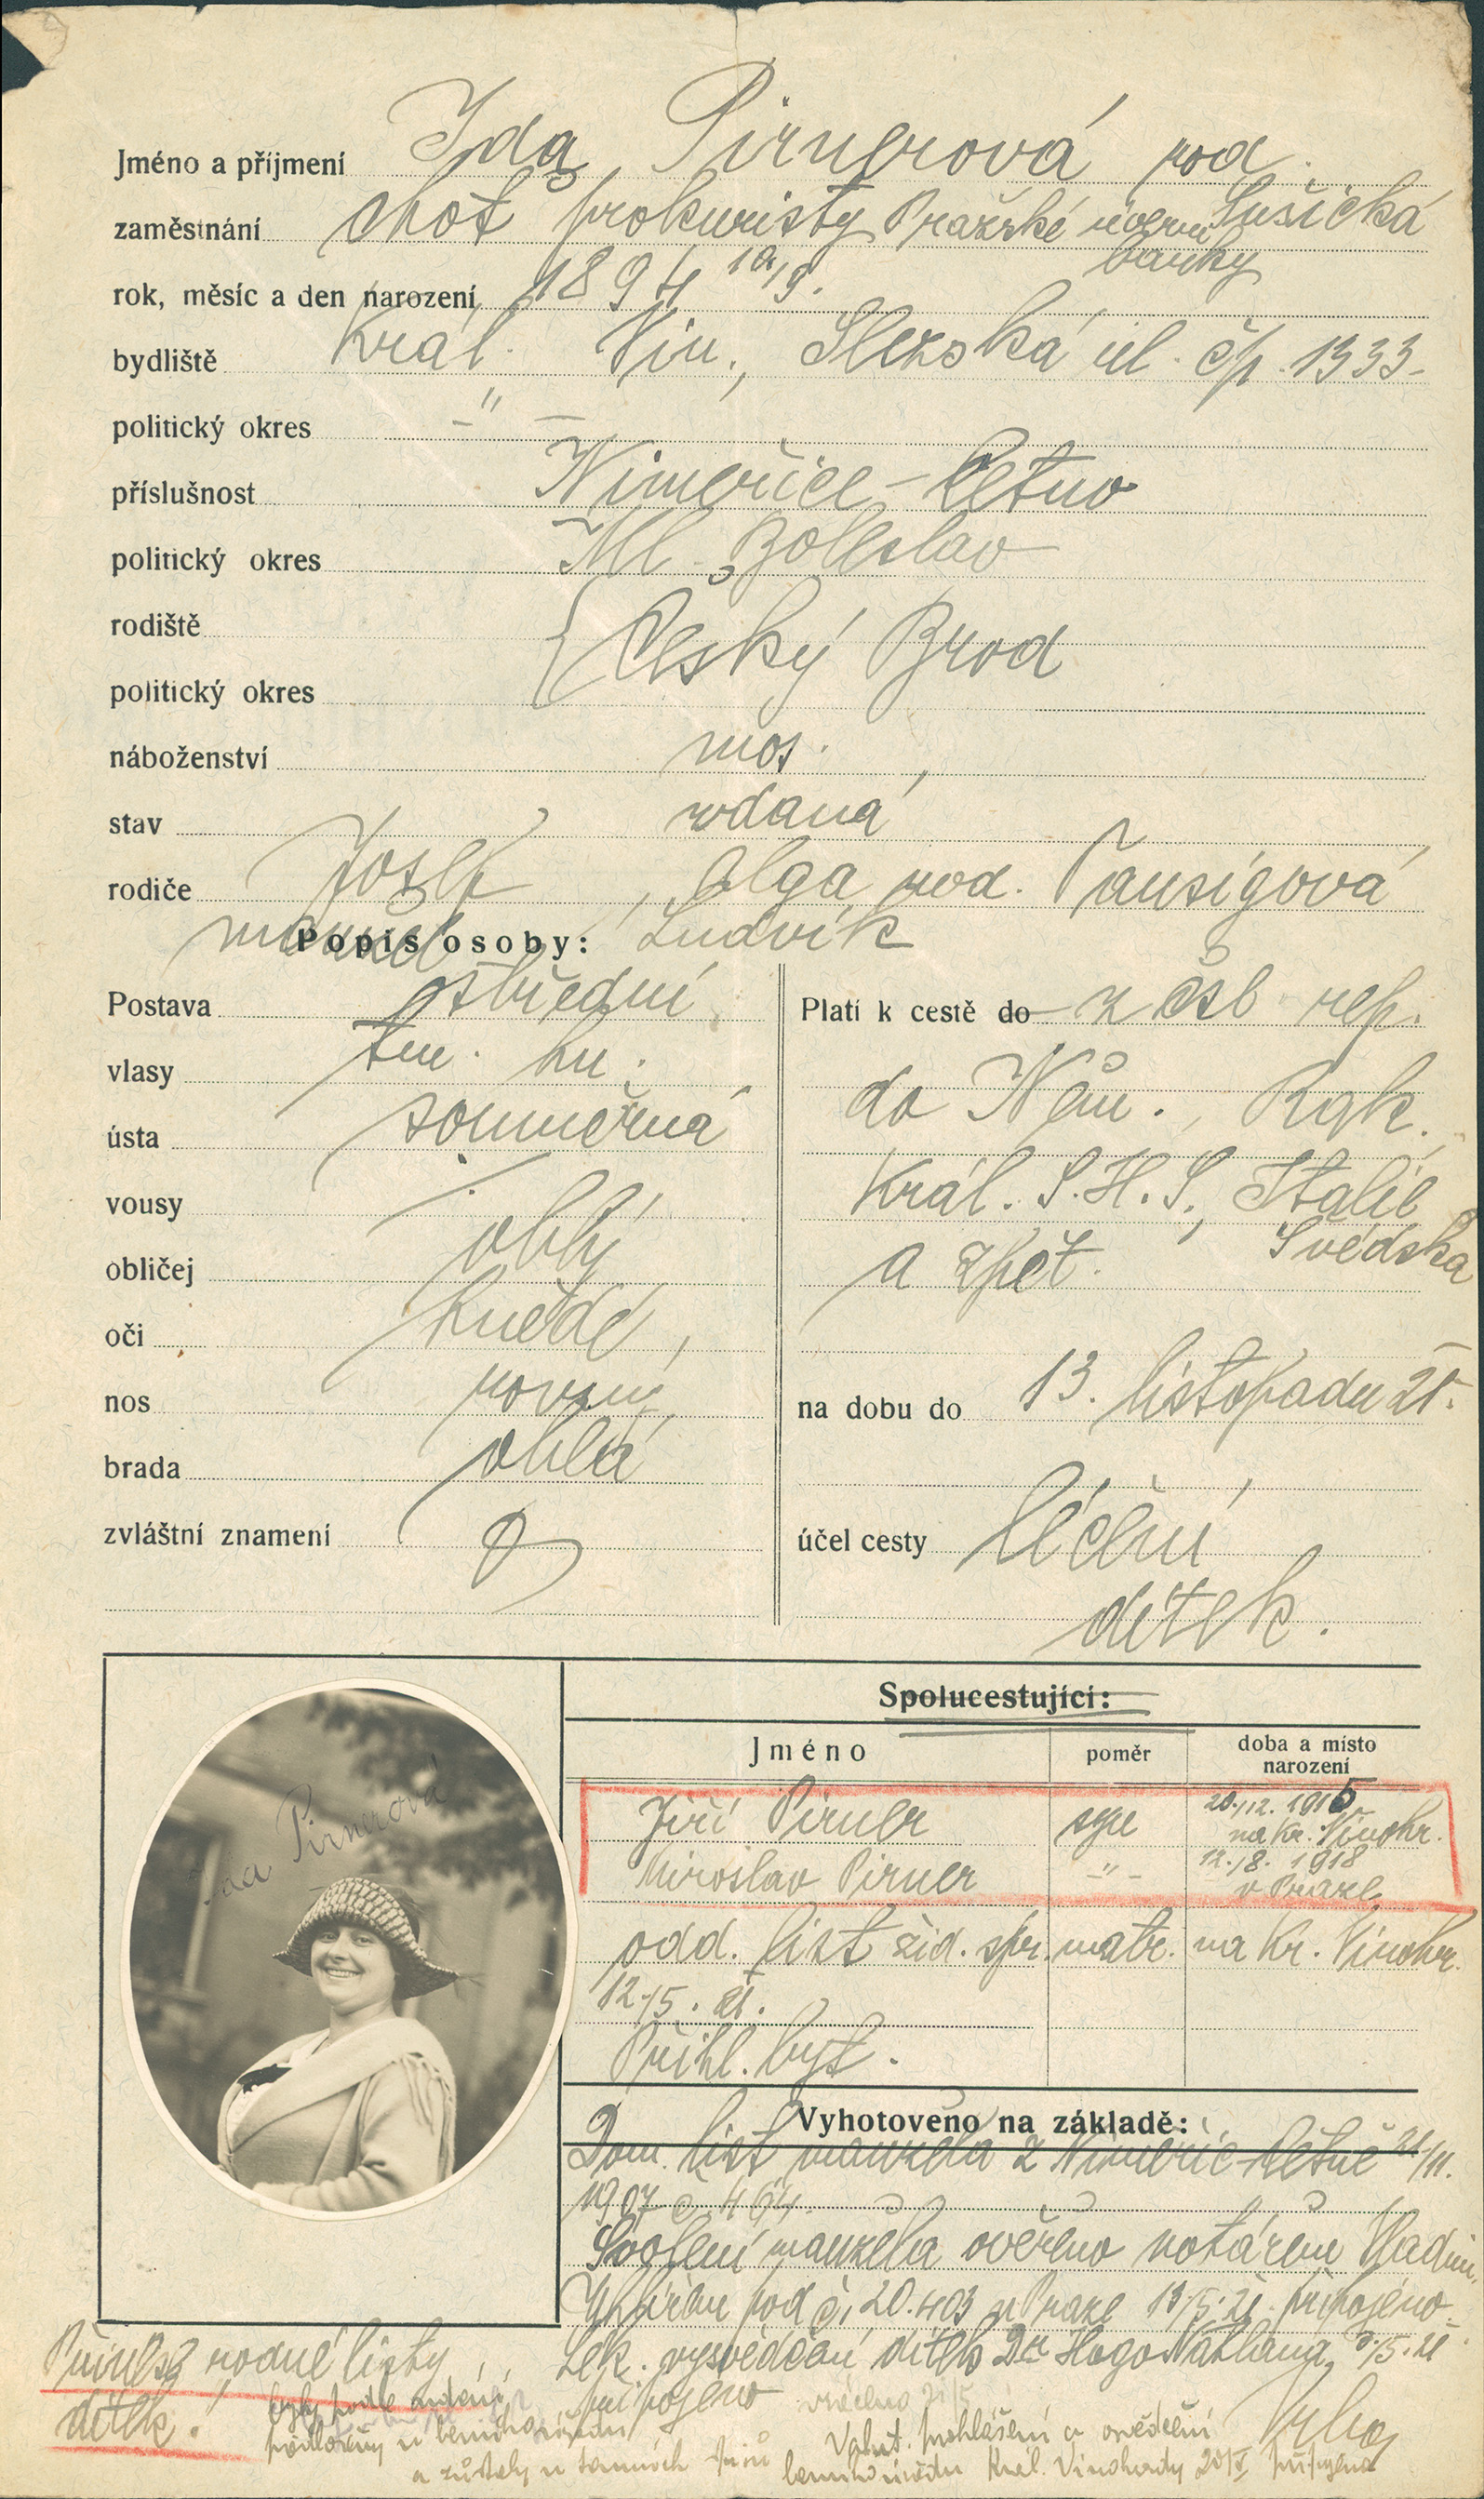 Jméno a příjmení Ida Pirnerová rod.
Sušická
zaměstnání choť prokuristy Pražské úvěrní
banky
rok, měsíc a den narození 1894 10/9.
bydliště Král. Vin., Slezská ul. čp. 1333-
politický okres -"-
příslušnost Niměřice-Letno
politický okres Ml. Boleslav
rodiště { Český Brod
politický okres
náboženství mos.
stav vdaná
rodiče Josef, Olga rod. Tausigová
manžel Ludvík
Popis osoby:
Postava střední
vlasy tm. hn.
ústa souměrná
vousy /.
obličej oblý
oči hnědé
nos rovný
brada oblá
zvláštní znamení 0
Platí k cestě do z čsl rep.
do Něm., Rak.
Král. S.H.S., Italie
Švédska
a zpět.
na dobu do 13. listopadu 21.
účel cesty léčení
dítek.
Ida Pirnerová
Spolucestující:
Jméno poměr doba a místo narození
Jiří Pirner syn 20./12. 1915 na Kr. Vinohr.
Miroslav Pirner -"- 12./8. 1918 v Praze
odd. list žid. spr. matr. na Kr. Vinohr.
12./5. 21.
Přihl. byt.
Vyhotoveno na základě:
Dom. list manžela z Niměřic-Letně 21/11.
1907 č 464.
Svolení manžela ověřeno notářem Vladim.
pod č. 20.403 v Praze 13/5. 21. připojeno.
Lék. vysvědčení dítek Dra Hugo Nathana 5. 21
připojeno
Přinese rodné listy
dítek!
byly podle
předloženy u berního úřadu
a zůstaly u tamních spisů
Valut. prohlášení a osvědčení
berního úřadu Král. Vinohrady 20/5 připojena